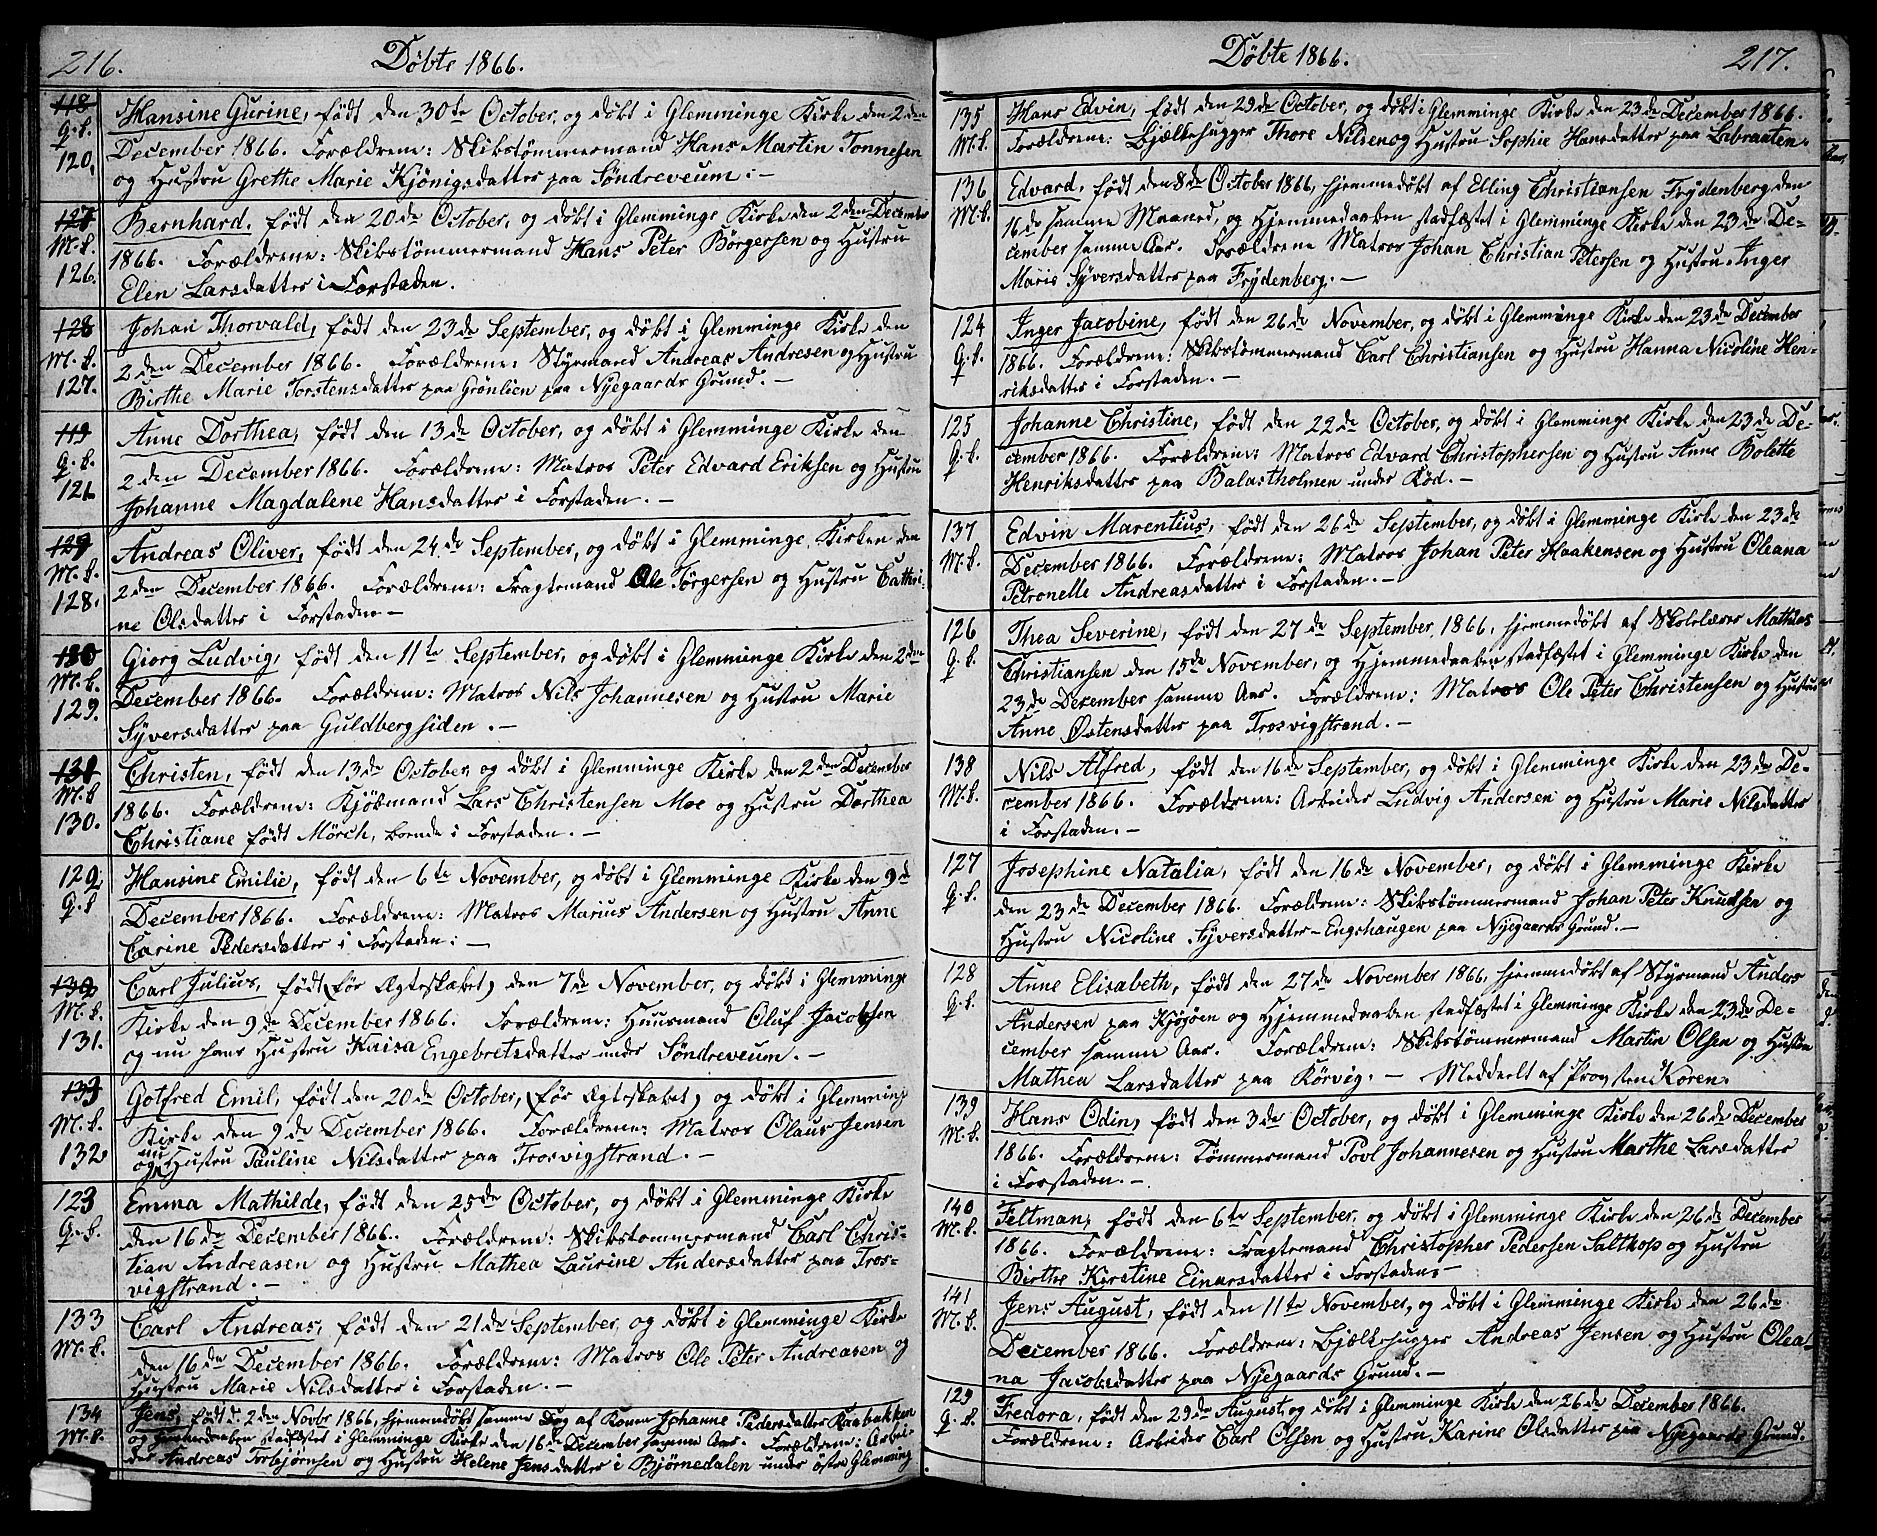 216.
Döbte 1866.
118
Q. k.
120.
Hansine Gurine, født den 30te October, og døbt i Glemminge Kirke den 2den
December 1866. Forældrene: Skibstømmermand Hans Martin Tonnesen
og Hustru Grethe Marie Kjönigsdatter paa Söndreveum. —
127
M. k.
126.
Bernhard, født den 20de October, og døbt i Glemminge Kirke den 2den December
1866. Forældrene: Skibstømmermand Hans Peter Börgersen og Hustru
Elen Larsdatter i Forstaden.
128
M. k.
127.
Johan Thorvald, født den 23de September, og døbt i Glemminge Kirke den
2den December 1866. Forældrene: Styrmand Andreas Andresen og Hustru
Birthe Marie Torstensdatter paa Grönlien paa Nyegaards Grund. —
119
Q. k.
121
Anne Dorthea, født den 13de October, og døbt i Glemminge Kirke den
2den December 1866. Forældrene: Matros Peter Edvard Eriksen og Hustru
Johanne Magdalene Hansdatter i Forstaden. —
129
M. k.
128.
Andreas Oliver, født den 24de September, og døbt i Glemminge Kirken den
2den December 1866. Forældrene: Fragtemand Ole Törgersen og Hustru Cathri-
ne Olsdatter i Forstaden —
130
M. k.
129.
Giorg Ludvig, født den 11te September, og døbt i Glemminge Kirke den 2den
December 1866. Forældrene: Matros Nils Johannesen og Hustru Marie
Syversdatter paa Guldbergsiden. —
131
M. k
130.
Christen, født den 13de October, og døbt i Glemminge Kirke den 2den December
1866. Forældrene: Kjöbmand Lars Christensen Moe og Hustru Dorthea
Christiane født Mörch, boende i Forstaden. —
122
Q. k
Hansine Emilie, født den 6te November, og døbt i Glemminge Kirke den 9de
December 1866. Forældrene: Matros Marius Andersen og Hustru Anne
Carine Pedersdatter i Forstaden: —
132
M. k.
131.
Carl Julius, født (før Ægteskabet) den 7de November, og døbt i Glemminge
Kirke den 9de December 1866. Forældrene: Huusmand Oluf Jacobsen
og nu hans Hustru Kaisa Engebretsdatter under Söndreveum. —
133
M. k.
132
Gotfred Emil, født den 20de October, (før Ægteskabet) og døbt i Glemminge
Kirke den 9de December 1866. Forældrene: Matros Olaus Jensen
og nu Hustru Pauline Nilsdatter paa Trosvigstrand. —
123
Q. k.
Emma Mathilde, født den 25de October, og døbt i Glemminge Kirke
den 16de December 1866. Forældrene: Skibstømmermand Carl Chris-
tian Andreasen og Hustru Mathea Laurine Andersdatter paa Tros-
vigstrand. —
133
M. k.
Carl Andreas, født den 21de September, og døbt i Glemminge Kirke
den 16de December 1866. Forældrene: Matros Ole Peter Andreasen og
Hustru Marie Nilsdatter i Forstaden. —
134
M. k.
Jens, født d. 2den Novbr 1866, hjemmedøbt samme Dag af Kone Johanne Pedersdatter Kaabakken
og Hjemmedaaben stadfæstet i Glemminge Kirke den 16de December samme Aar. Forældrene: Arbei-
der Andreas Torbjørnsen og Hustru Helene Jensdatter i Bjørnedalen under östre Glemming
Döbte 1866.
217.
135
M. k.
Hans Edvin, født den 29de October, og døbt i Glemminge Kirke den 23de December 1866.
Forældrene: Bjælkehugger Thore Nilsen og Hustru Sophie Hansdatter paa Labraaten.
136
M. k.
Edvard, født den 8de October 1866, hjemmedøbt af Elling Christiansen Frydenberg den
16de samme Maaned, og Hjemmedaaben stadfæstet i Glemminge Kirke den 23de De-
cember samme Aar. Forældrene Matros Johan Christian Petersen og Hustru Inger
Marie Syversdatter paa Frydenberg. —
124
Q. k.
Inger Jacobine, født den 26de November, og døbt i Glemminge Kirke den 23de December
1866. Forældrene: Skibstømmermand Carl Christiansen og Hustru Hanna Nicoline Hen-
riksdatter i Forstaden. —
125
Q. k.
Johanne Christine, født den 22de October, og døbt i Glemminge Kirke den 23de De-
cember 1866. Forældrene: Matros Edvard Christophersen og Hustru Anne Bolette
Henriksdatter paa Balastholmen under Kød. —
137
M. k.
Edvin Marentius, født den 26de September, og døbt i Glemminge Kirke den 23de
December 1866. Forældrene: Matros Johan Peter Haakensen og Hustru Oleana
Petronelle Andreasdatter i Forstaden. —
126
Q. k.
Thea Severine, født den 27de September 1866, hjemmedøbt af Skolelærer Mathias
Christiansen den 15de November, og Hjemmedaaben stadfæstet i Glemminge Kirke den
23de December samme Aar. Forældrene: Matros Ole Peter Christensen og Hustru
Anne Østensdatter paa Trosvigstrand. —
138
M. k.
Nils Alfred, født den 16de September, og døbt i Glemminge Kirke den 23de De-
cember 1866. Forældrene: Arbeider Ludvig Andersen og Hustru Marie Nilsdatter
i Forstaden. —
127
Q. k.
Josephine Natalia, født den 16de November, og døbt i Glemminge Kirke
den 23de December 1866. Forældrene: Skibstømmermand Johan Peter Knudsen og
Hustru Nicoline Syversdatter — Engshaugen paa Nyegaards Grund. —
128
Q. k.
Anne Elisabeth, født den 27de November 1866, hjemmedøbt af Styrmand Anders
Andersen paa Kjøgøen og Hjemmedaaben stadfæstet i Glemminge Kirke den 23de De-
cember samme Aar. Forældrene: Skibstømmermand Martin Olsen og Hustru
Mathea Larsdatter paa Körvig. — Meddeelt af Provsten Koren.
139
M. k.
Hans Odin, født den 3de October, og døbt i Glemminge Kirke den 26de December
1866. Forældrene: Tømmermand Povl Johannesen og Hustru Marthe Larsdatter
i Forstaden. —
140
M. k.
Feltman, født den 6te September, og døbt i Glemminge Kirke den 26de December
1866. Forældrene: Fragtemand Christopher Pedersen Saltkop og Hustru
Birthe Kirstine Einarsdatter i Forstaden. —
141
M. k.
Jens August, født den 11te November, og døbt i Glemminge Kirke den 26de
December 1866. Forældrene: Bjælkehugger Andreas Jensen og Hustru Olea-
na Jacobsdatter paa Nyegaards Grund. —
129
Q. k.
Fredora, født den 29de August, og døbt i Glemminge Kirke den 26de December 1866.
Forældrene: Arbeider Carl Olsen og Hustru Karine Olsdatter paa Nyegaards Grund.